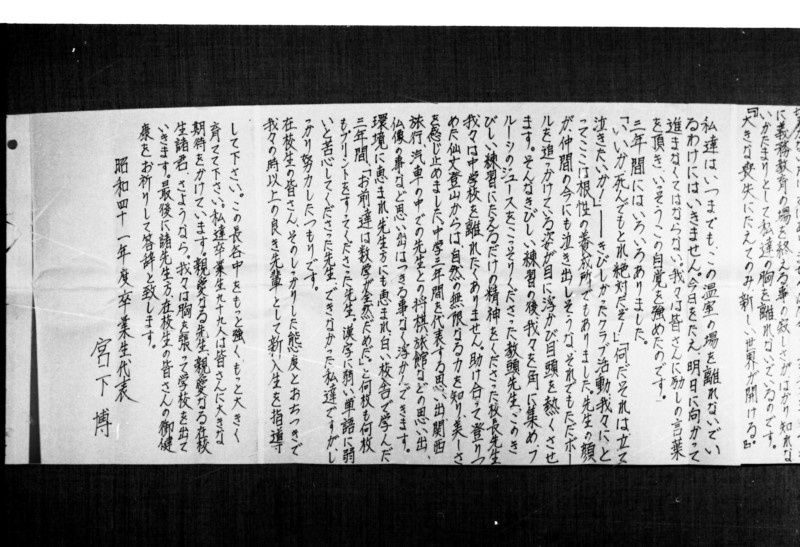 に義務教育の場を終える事の寂しさがはかり知れな
いかたまりとして私達の胸を離れないでいるのです。
『大きな喪失にたえてのみ新しい世界が開ける。』
私達は、いつまでも、この温室の場を離れないでい
るわけにはいきません。今日をたえ、明日に向かって
進まなくてはならない。我々は皆さんに励しの言葉
を頂き、いっそうこの自覚を強めたのです。
三年間にはいろいろありました。
「いいか死んでもとれ絶対だぞ!」「何だそれは立て
泣きたいか!」――きびしかったクラブ活動我々にと
ってここは根性の養成所でもありました。先生の顔
が、仲間の今にも泣き出しそうな、それでもただボー
ルを追っかけている姿が目に浮かび目頭を熱くさせ
ます。そんなきびしい練習の後我々を一角に集めフ
ルーシのジュースをこっそりくださった教頭先生、このき
びしい練習にたえるだけの精神をくださった校長先生
我々は中学校を離れたくありません。助け合って登りつ
めた仙丈登山からは自然の無限なる力を知り、美しさ
を感じ止めました。中学三年間を代表する思い出関西
旅行汽車の中での先生との将棋旅館などの思い出、
仏像の事など思い出はつきる事なく浮かんできます。
環境に恵まれ先生方にも恵まれ白い校舎で学んだ
三年間、「お前達は数学が全然だめだ。」と何枚も何枚
もプリントをすってくださった先生、漢字に弱い単語に弱
いと苦心してくださった先生。できなかった私達ですがし
っかり努力したつもりです。
在校生の皆さん、そのしっかりした態度とおちつきで
我々の時以上の良き先輩として新入生を指導
して下さい。この長谷中をもっと強く、もっと大きく
育てて下さい。私達卒業生九十九人は皆さんに大きな
期待をかけています。親愛なる先生、親愛なる在校
生諸君、さようなら。我々は胸を張って学校を出て
いきます。最後に諸先生方、在校生の皆さんの御健
康をお祈りして答辞と致します。
昭和四十一年度卒業生代表
宮下 博